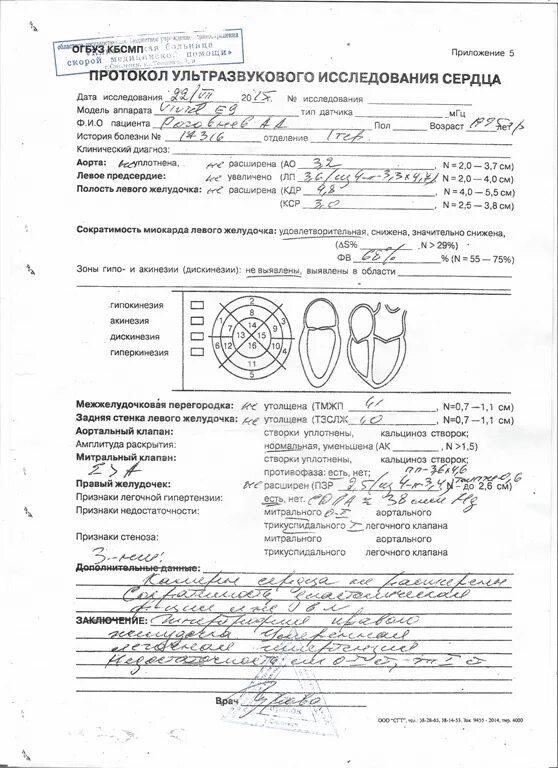 ОГБУЗ КБСМП
Приложение 5
скорой медицинской помощи»
ПРОТОКОЛ УЛЬТРАЗВУКОВОГО ИССЛЕДОВАНИЯ СЕРДЦА
Дата исследования 22/VII 201 № исследования
Модель аппарата Vivid E9 тип датчика мГц
Ф.И.О пациента Пол Возраст
История болезни № 17316 отделение 1 тер.
Клинический диагноз:
Аорта: не уплотнена, не расширена (АО 3,2 N = 2,0 – 3,7 см)
Левое предсердие: не увеличено (ЛП 3,6/ 4-п-3,3х4,7/ N = 2,0 – 4,0 см)
Полость левого желудочка: не расширена (КДР 4,8 N = 4,0 – 5,5 см)
(КСР 3,0 N = 2,5 – 3,8 см)
Сократимость миокарда левого желудочка: удовлетворительная, снижена, значительно снижена,
(ΔS% , N > 29%)
ФВ 68% % (N = 55 – 75%)
Зоны гипо- и акинезии (дискинезии): не выявлены, выявлены в области
гипокинезия
акинезия
дискинезия
гиперкинезия
2
8
1 7 14 9 3
13 15
6 12 16 10 4
11
5
Межжелудочковая перегородка: не утолщена (ТМЖП N=0,7 – 1,1 см)
Задняя стенка левого желудочка: не утолщена (ТЗСЛЖ 1,0 N=0,7 – 1,1 см)
Аортальный клапан: створки уплотнены, кальциноз створок;
Амплитуда раскрытия: нормальная, уменьшена (АК , N >1,5)
Митральный клапан: створки уплотнены, кальциноз створок;
E>A противофаза: есть, нет; пп-3,6х4,6
Правый желудочек: не расширен (ПЗР 2,5/ 4-п-3,4/ N – до 2,6 см)
Признаки легочной гипертензии: есть, нет. СДЛА = 38 мм Hg
Признаки недостаточности: митрального 0-I аортального
трикуспидального I легочного клапана
Признаки стеноза: митрального аортального
трикуспидального легочного клапана
Дополнительные данные:
Камеры сердца не расширены
Сократимость
ЗАКЛЮЧЕНИЕ: правого
желудочка. Умеренная
легочная гипертензия
Недостаточность
Врач
ООО "СГТ", тел.: 38-28-65, 38-14-53. Зак. 9455 - 2014, тир. 4000